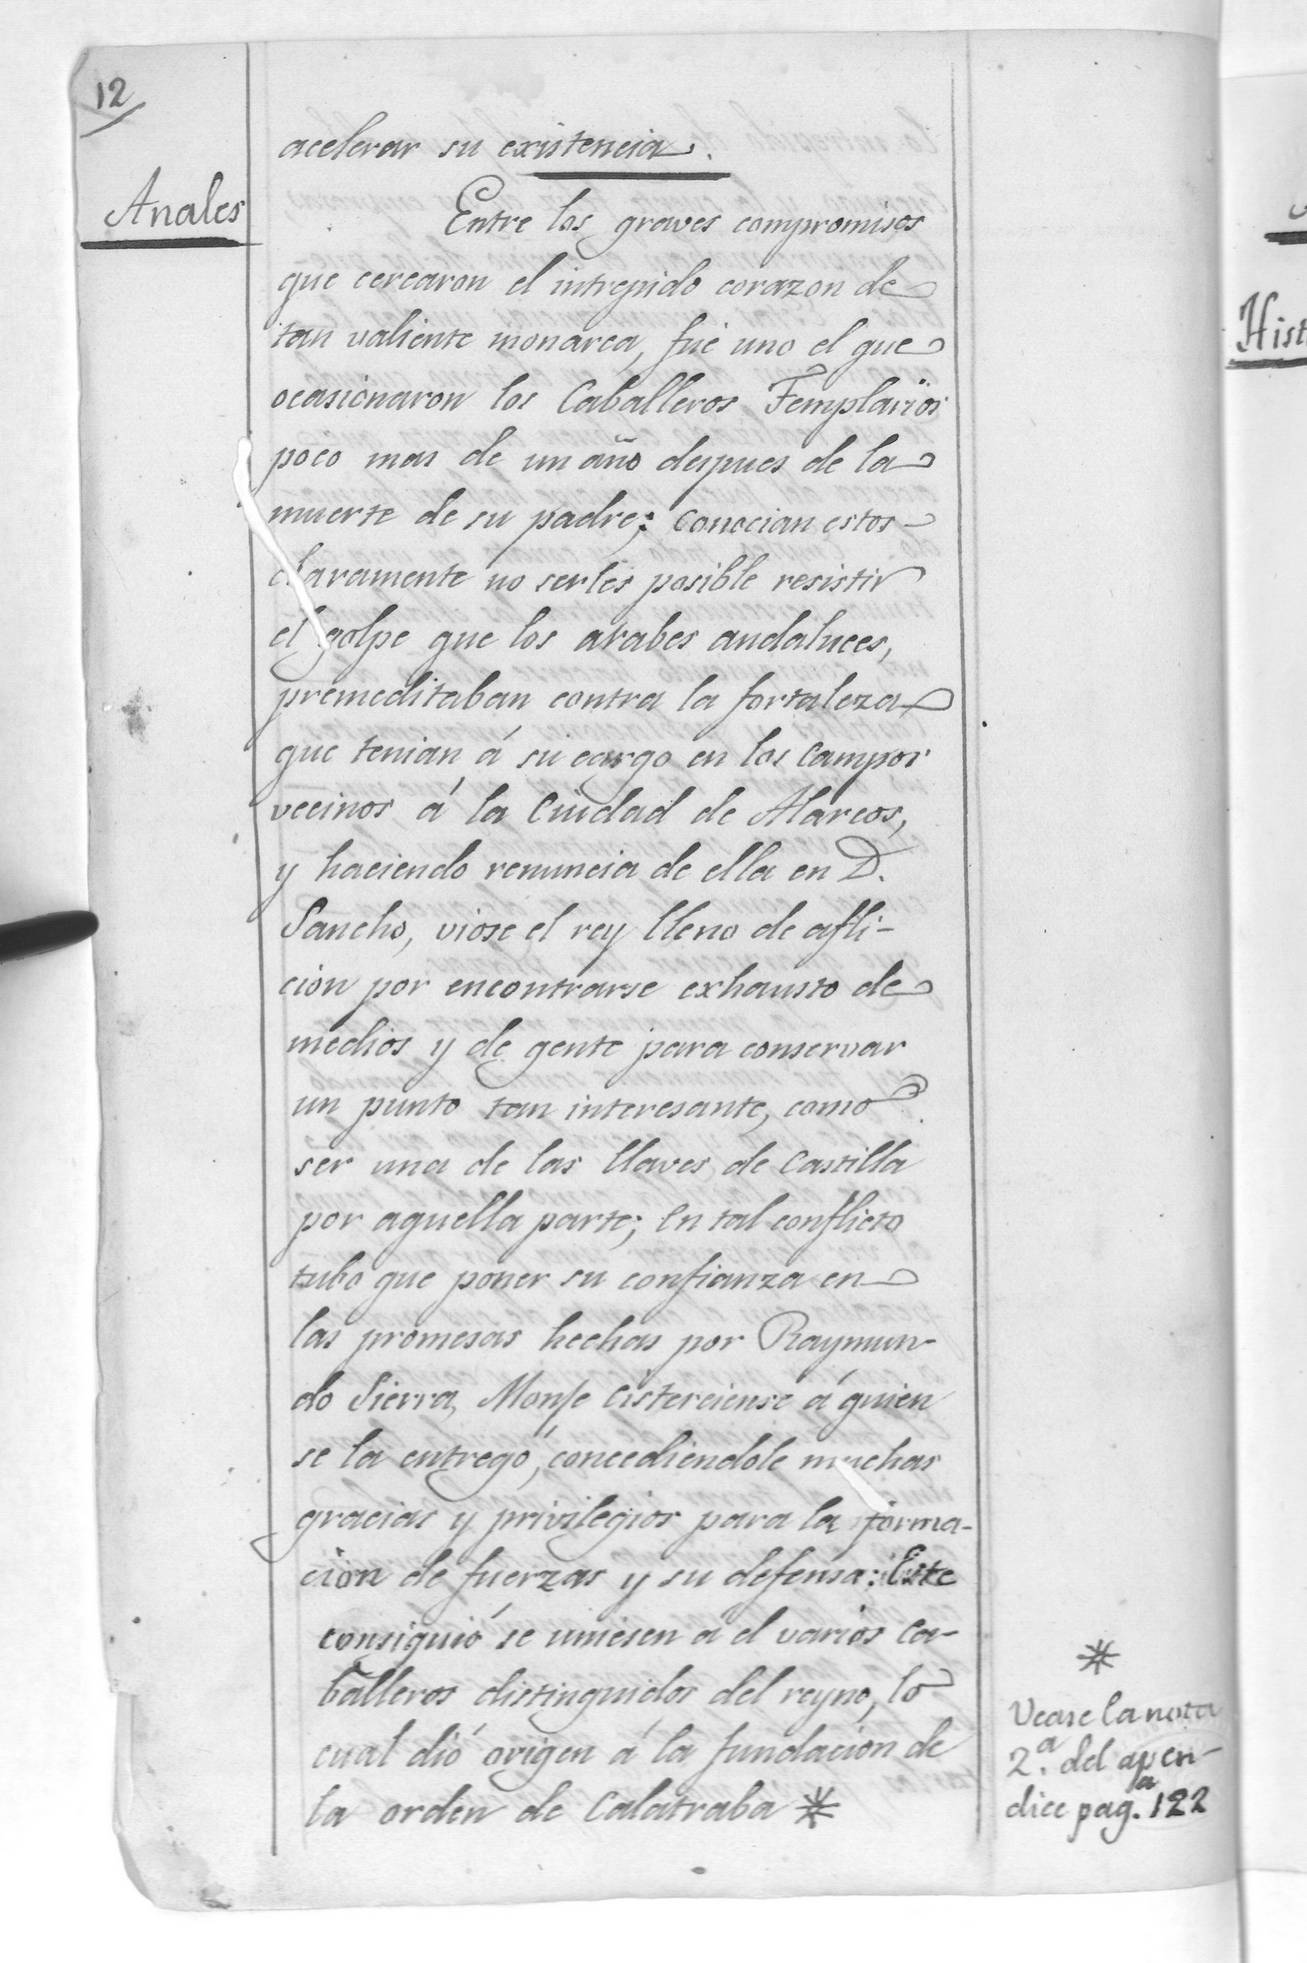 12
Anales
acelerar su existencia.
Entre los graves compromisos
que cercaron el intrepido corazon de
tan valiente monarca, fué uno el que
ocasionaron los Caballeros Templarios
poco mas de un año despues de la
muerte de su padre; conocian estos
claramente no serles posible resistir
el golpe que los arabes andaluces,
premeditaban contra la fortaleza
que tenian á su cargo en los campos
vecinos á la Ciudad de Alarcos,
y haciendo renuncia de ella en D.
Sancho, viose el rey lleno de afli-
cion por encontrarse exhausto de
medios y de gente para conservar
un punto tan interesante, como
ser una de las llaves de Castilla
por aquella parte; en tal conflicto
tubo que poner su confianza en
las promesas hechas por Raymun-
do Sierra, Monje cisterciense á quien
se la entregó, concediendole muchas
gracias y privilegios para la forma-
cion de fuerzas y su defensa: Este
consiguió se uniesen á el varios ca-
balleros distinguidos del reyno, lo
cual dió origen á la fundacion de
la orden de Calatraba *
*
Vease la nota
2.ª del apen-
dice pag.ª 122
Hist